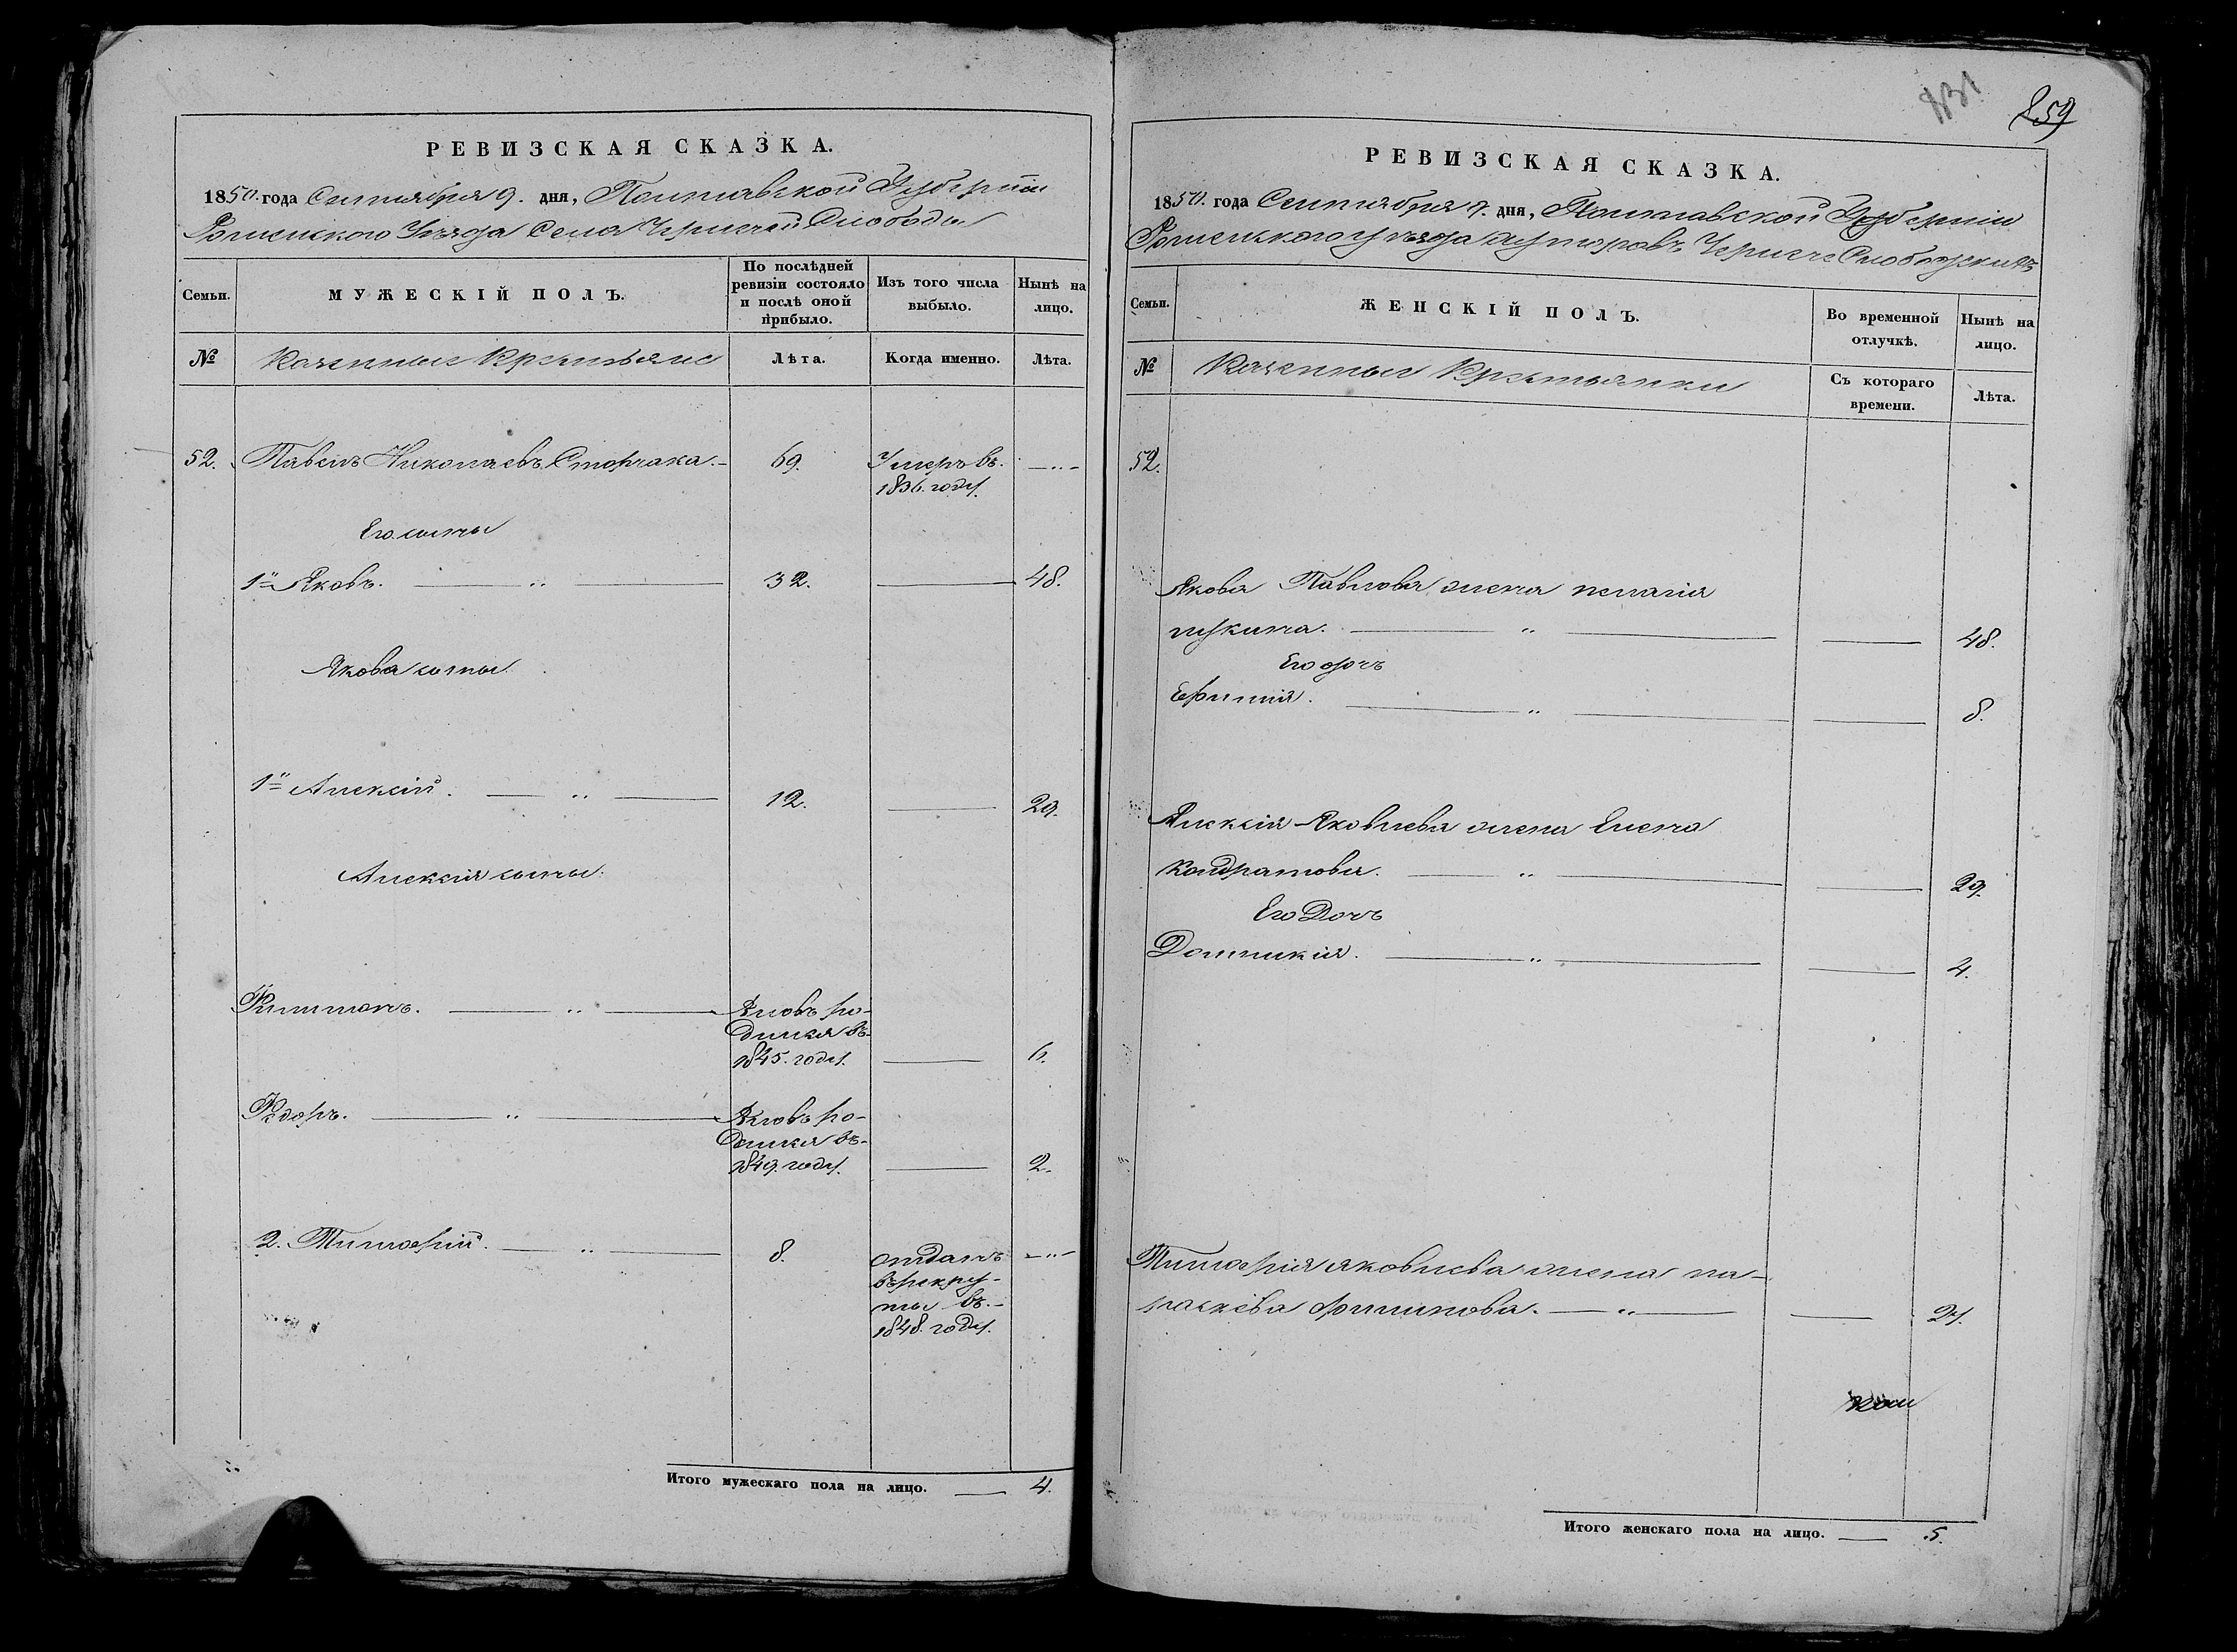 РЕВИЗСКАЯ СКАЗКА.
1850. года Сентября 9. дня, Полтавской Губернии
Роменского Уезда Села Чернечей Слободы
Семьи.
МУЖЕСКІЙ ПОЛЪ.
По послѣдней ревизіи состояло и послѣ оной прибыло.
Изъ того числа выбыло.
Нынѣ на лицо.
№
Казенные Крестьяне
Лѣта.
Когда именно.
Лѣта.
52. Павелъ Николаевъ Сторчака. 69. Умеръ въ
1836. году.
Его сыны
1й Яковъ. 32. 48.
Якова сыны
1й Алексій. 12. 29.
Алексія сыны.
Филимонъ. Вновь ро-
дился въ
1845. году. 6.
Федоръ. Вновь ро-
дился въ
1849. году. 2.
2. Тимофій. 8. отданъ
въ рекру-
ты въ
1848. году.
Итого мужескаго пола на лицо. 4.
831
859
РЕВИЗСКАЯ СКАЗКА.
1850. года Сентября 9. дня, Полтавской Губерніи
Роменского уезда хуторовъ Чернече Слобоцкихъ
Семьи.
ЖЕНСКІЙ ПОЛЪ.
Во временной отлучкѣ.
Нынѣ на лицо.
№
Казенные Крестьянки
Съ котораго времени.
Лѣта.
52.
Якова Павлова жена пелагія
лукина. 48.
Его дочь
Ефимія. 8.
Алексія Яковлева жена Елена
Кондратова. 29.
Его Дочь
Домникія. 4.
Тимофія яковлева жена па-
раскева филипова. 24.
Итого женскаго пола на лицо. 5.